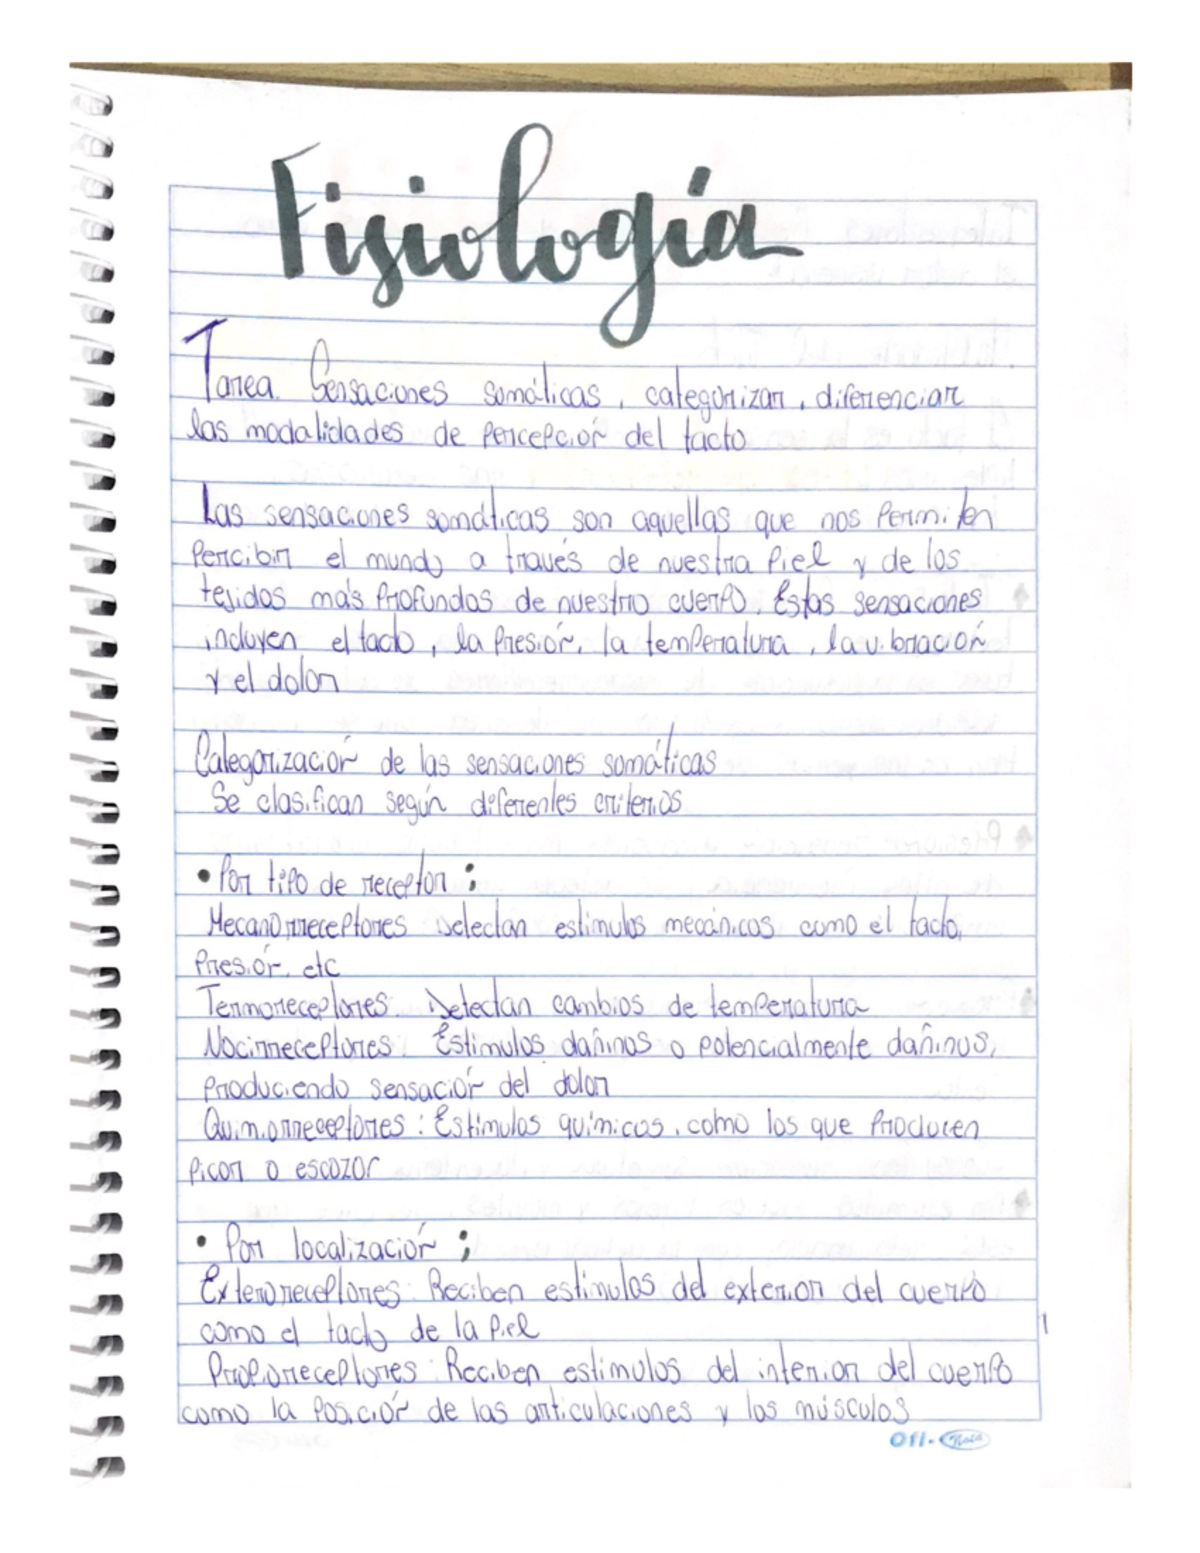 Fisiología
Tarea. Sensaciones somáticas, categorizar, diferenciar
las modalidades de percepción del tacto
Las sensaciones somáticas son aquellas que nos permiten
percibir el mundo a través de nuestra piel y de los
tejidos más profundos de nuestro cuerpo. Estas sensaciones
incluyen el tacto, la presión, la temperatura, la vibración
y el dolor
Categorización de las sensaciones somáticas
Se clasifican según diferentes criterios
• Por tipo de receptor:
Mecanorreceptores Detectan estimulos mecánicos como el tacto,
Presión, etc
Termoreceptores: Detectan cambios de temperatura
Nocirreceptores: Estimulos dañinos o potencialmente dañinos,
produciendo sensación del dolor
Quimiorreceptores: Estimulos químicos, como los que producen
picor o escozor
• Por localización:
Exteroreceptores: Reciben estimulos del exterior del cuerpo
como el tacto de la piel
Propioreceptores: Reciben estimulos del interior del cuerpo
como la posición de las articulaciones y los músculos
1